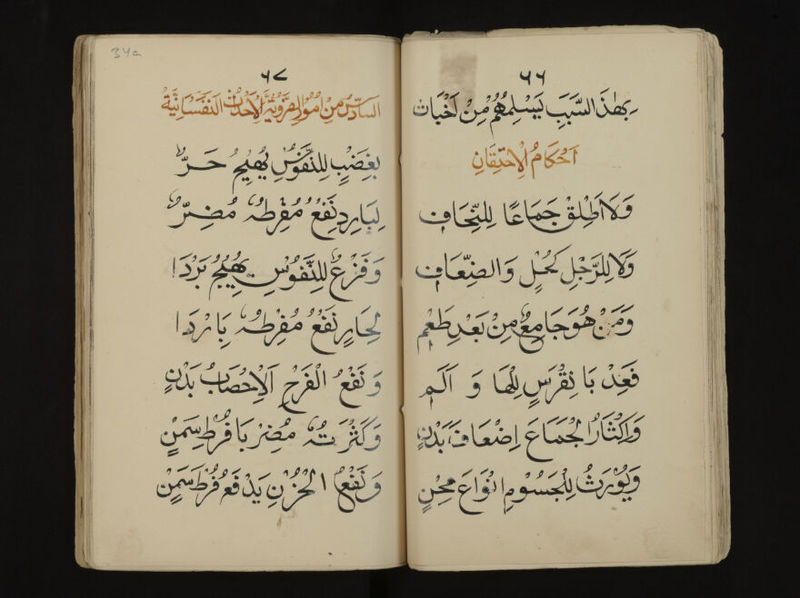 ٦٦
بهذا السَبَبِ يَسْلِمُهُمْ مِنْ اَخْبَاث
اَحْكَامُ الْاِحْتِقَانِ
وَلَا اَطْلِقْ جَمَاعًا لِلنِّحَاف
وَلَا لِلرَّجْلِ كَحْلٍ وَالضِّعَاف
وَمَنْ هُوَ جَامِعٌ مِنْ بَعْدِ طَعْم
فَعِدْ بَا نِقْرَسٍ لِلْهَا وَ اَلَم
وَاِكْثَارُ الْجَمَاعَ اِضْعَافَ بَدَنٍ
وَيُوْرَثُ لِلْجَسُوْمِ انْوَاعَ مِحْنٍ
٦٧
السَادِسُ مِنْ اُمُوْرِ الضَرُوْرِيَّةِ الْاَحْدَاثِ النَفْسَانِيَّةْ
بِغَضَبٍ لِلنُّفُوْسِ يُهِيْجُ حَرٌّ
لِبَارِدٍ نَفْعُ مُفْرِطُهُ مُضِرٌّ
وَفَزْعُ لِلنُّفُوْسِ يُهِيْجُ بَرْدَا
لِحَارٍ نَفْعُ مُفْرِطُهُ بَارْدَا
وَنَفْعُ الْفَرْحِ اَلْاِخْصَابُ بَدْنٍ
وَكَثْرَتُهُ مُضِرْ بَافُرْطِ سِمَنٍ
وَنَفْعُ الْحُزْنِ يَدْفَعُ فُرْطَ سَمْنٍ
34a